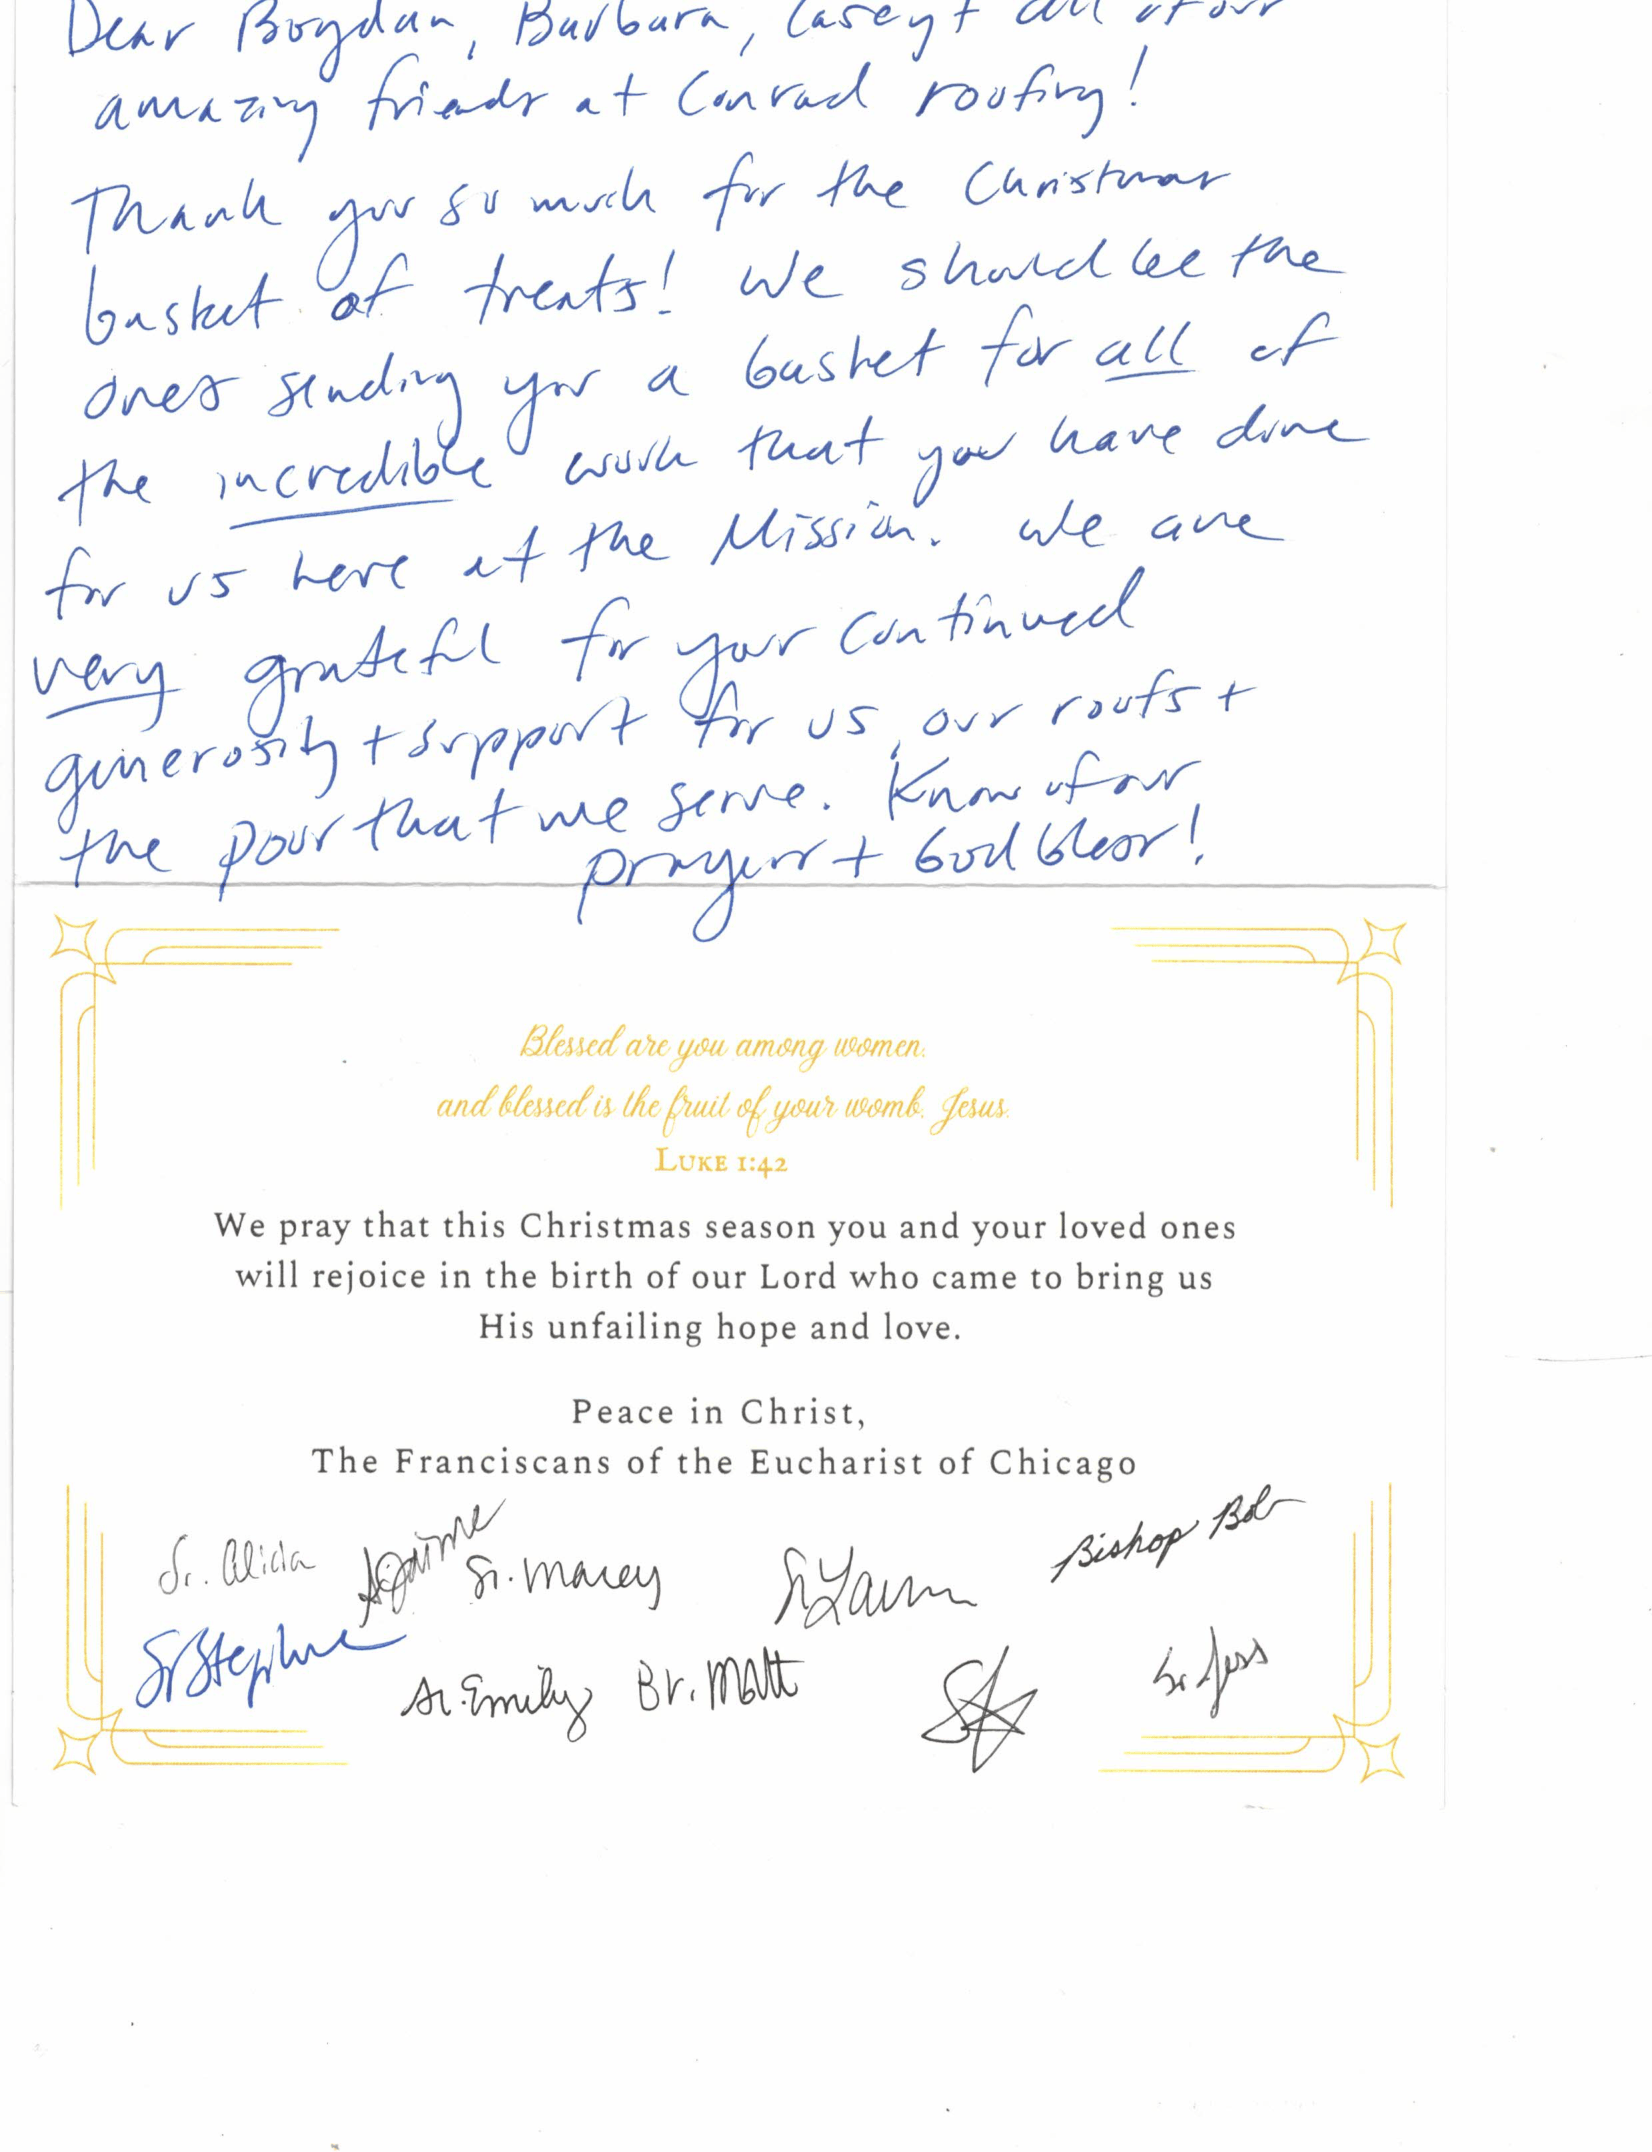 Dear Bogdan, Barbara, Casey + all of our
amazing friends at Conrad roofing!
Thank you so much for the Christmas
basket of treats! We should be the
ones sending you a basket for all of
the incredible work that you have done
for us here at the Mission. We are
very grateful for your continued
generosity + support for us, our roofs +
the poor that we serve. Know of our
prayers + God bless!
Blessed are you among women,
and blessed is the fruit of your womb, Jesus.
LUKE 1:42
We pray that this Christmas season you and your loved ones
will rejoice in the birth of our Lord who came to bring us
His unfailing hope and love.
Peace in Christ,
The Franciscans of the Eucharist of Chicago
Sr. Alicia Sr. Jaime Sr. Marcy Bishop Bob
Sr Stephanie Sr. Emily Br. Matt Sr Jess